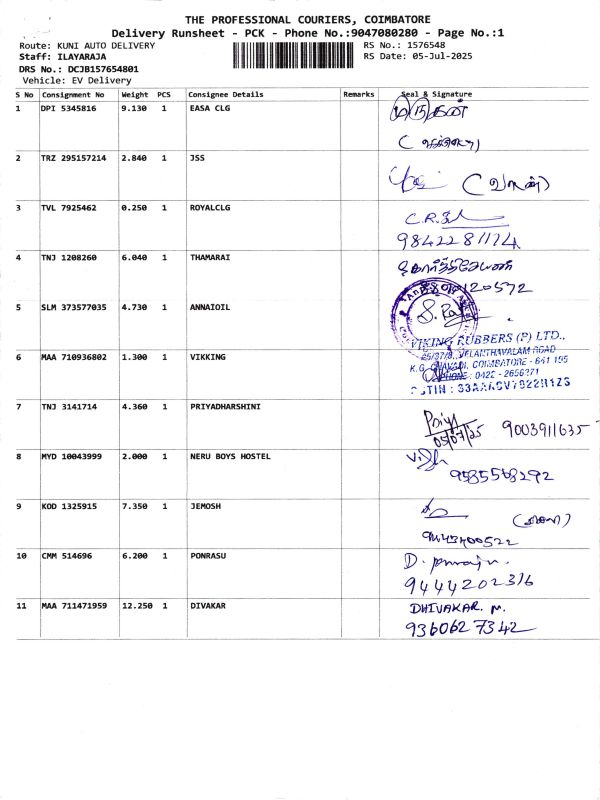 THE PROFESSIONAL COURIERS, COIMBATORE
Delivery Runsheet - PCK - Phone No.:9047080280 - Page No.:1
Route: KUNI AUTO DELIVERY RS No.: 1576548
Staff: ILAYARAJA RS Date: 05-Jul-2025
DRS No.: DCJB157654801
Vehicle: EV Delivery
S No Consignment No Weight PCS Consignee Details Remarks Seal & Signature
1 DPI 5345816 9.130 1 EASA CLG
2 TRZ 295157214 2.840 1 JSS
3 TVL 7925462 0.250 1 ROYALCLG C.R.
9842281174
4 TNJ 1208260 6.040 1 THAMARAI
5 SLM 373577035 4.730 1 ANNAIOIL
VIKING RUBBERS (P) LTD.,
6 MAA 710936802 1.300 1 VIKKING
VELANTHAVALAM ROAD
COIMBATORE - 641 105
PHONE : 0422 - 2656371
7 TNJ 3141714 4.360 1 PRIYADHARSHINI Priya
05/07/25 9003911635
8 MYD 10043999 2.000 1 NERU BOYS HOSTEL
9585568292
9 KOD 1325915 7.350 1 JEMOSH
10 CMM 514696 6.200 1 PONRASU
9444202316
11 MAA 711471959 12.250 1 DIVAKAR DHIVAKAR. M.
9360627342